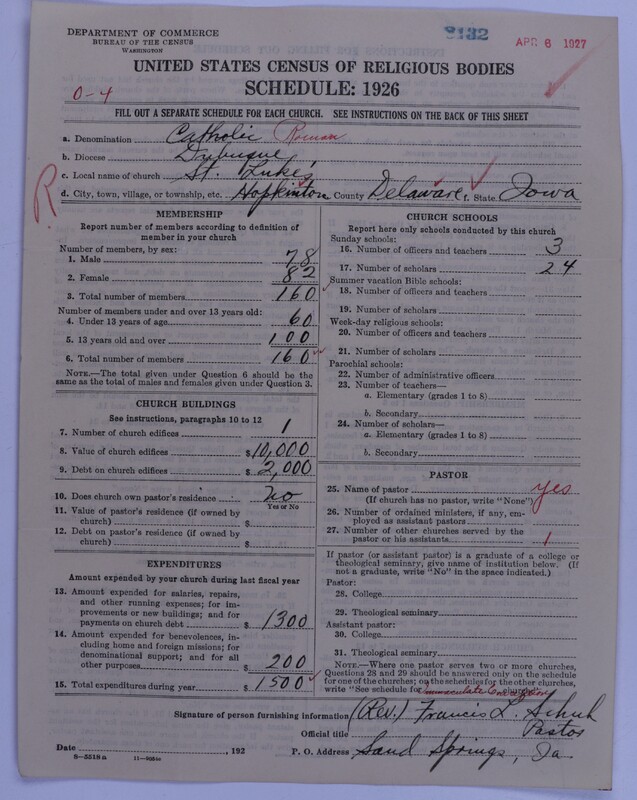 DEPARTMENT OF COMMERCE
BUREAU OF THE CENSUS
WASHINGTON
8132
APR 6 1927
UNITED STATES CENSUS OF RELIGIOUS BODIES
SCHEDULE: 1926
0-4
FILL OUT A SEPARATE SCHEDULE FOR EACH CHURCH. SEE INSTRUCTIONS ON THE BACK OF THIS SHEET
a. Denomination Catholic Roman
b. Diocese Dubuque
c. Local name of church St. Luke's
d. City, town, village, or township, etc. Hopkinton County Delaware f. State Iowa
R
MEMBERSHIP
Report number of members according to definition of member in your church
Number of members, by sex:
1. Male 78
2. Female 82
3. Total number of members 160
Number of members under and over 13 years old:
4. Under 13 years of age 60
5. 13 years old and over 100
6. Total number of members 160
NOTE.—The total given under Question 6 should be
same as the total of males and females given under Question 3.
CHURCH BUILDINGS
See instructions, paragraphs 10 to 12
7. Number of church edifices 1
8. Value of church edifices $10,000
9. Debt on church edifices $2,000
10. Does church own pastor's residence no
Yes or No
11. Value of pastor's residence (if owned by
church) $
12. Debt on pastor's residence (if owned by
church) $
EXPENDITURES
Amount expended by your church during last fiscal year
13. Amount expended for salaries, repairs,
and other running expenses; for im-
provements or new buildings; and for
payments on church debt $ 1300
14. Amount expended for benevolences, in-
cluding home and foreign missions; for
denominational support; and for all
other purposes $ 200
15. Total expenditures during year $ 1500
CHURCH SCHOOLS
Report here only schools conducted by this church
Sunday schools:
16. Number of officers and teachers 3
17. Number of scholars 24
Summer vacation Bible schools:
18. Number of officers and teachers
19. Number of scholars
Week-day religious schools:
20. Number of officers and teachers
21. Number of scholars
Parochial schools:
22. Number of administrative officers
23. Number of teachers—
a. Elementary (grades 1 to 8)
b. Secondary
24. Number of scholars—
a. Elementary (grades 1 to 8)
b. Secondary
PASTOR
25. Name of pastor yes
(If church has no pastor, write "None")
26. Number of ordained ministers, if any, em-
ployed as assistant pastors
27. Number of other churches served by the
pastor or his assistants 1
If pastor (or assistant pastor) is a graduate of a college or
theological seminary, give name of institution below. (If
not a graduate, write "No" in the space indicated.)
Pastor:
28. College
29. Theological seminary
Assistant pastor:
30. College
31. Theological seminary
NOTE.—Where one pastor serves two or more churches,
Questions 28 and 29 should be answered only on the schedule
for one of the churches; on the schedules for the other churches,
write "See schedule for Immaculate Conception church."
Signature of person furnishing information (Rev.) Francis L. Schuh
Official title Pastor
Date , 192
P. O. Address Sand Springs, Ia
8—5518a